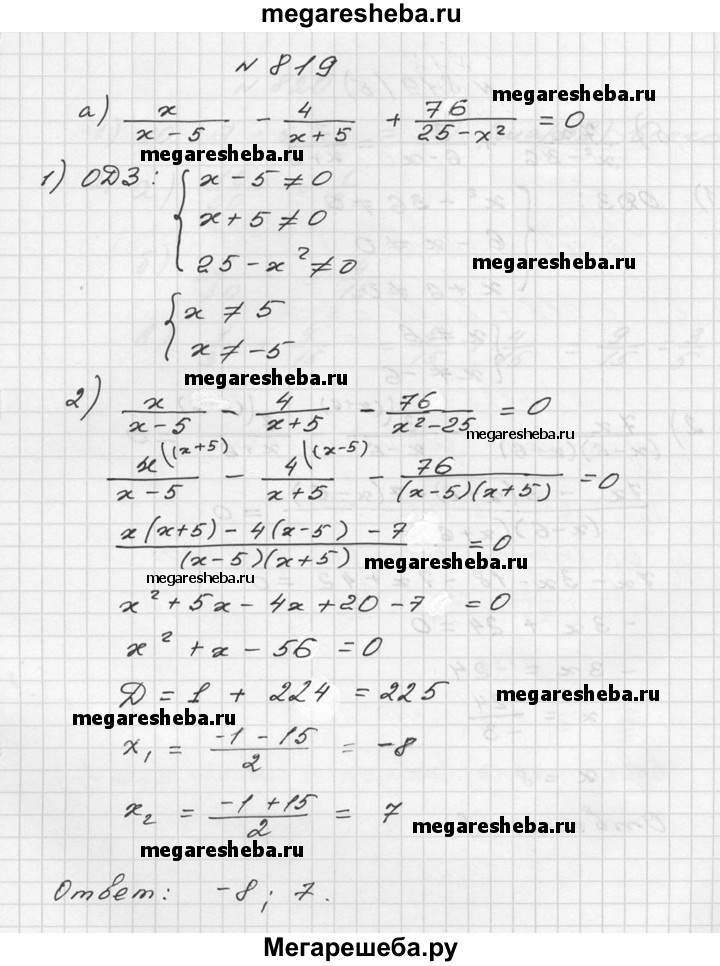 megaresheba.ru
№ 819
а) x/(x-5) - 4/(x+5) + 76/(25-x²) = 0
megaresheba.ru
megaresheba.ru
1) ОДЗ: { x - 5 ≠ 0
x + 5 ≠ 0
25 - x² ≠ 0
megaresheba.ru
{ x ≠ 5
x ≠ -5
megaresheba.ru
2) x/(x-5) - 4/(x+5) - 76/(x²-25) = 0
megaresheba.ru
x\(x+5)/(x-5) - 4\(x-5)/(x+5) - 76/((x-5)(x+5)) = 0
(x(x+5) - 4(x-5) - 7)/((x-5)(x+5)) = 0
megaresheba.ru
megaresheba.ru
x² + 5x - 4x + 20 - 7 = 0
x² + x - 56 = 0
Д = 1 + 224 = 225
megaresheba.ru
megaresheba.ru
x₁ = (-1 - 15)/2 = -8
x₂ = (-1 + 15)/2 = 7
megaresheba.ru
megaresheba.ru
Ответ: -8; 7.
Мегарешеба.ру